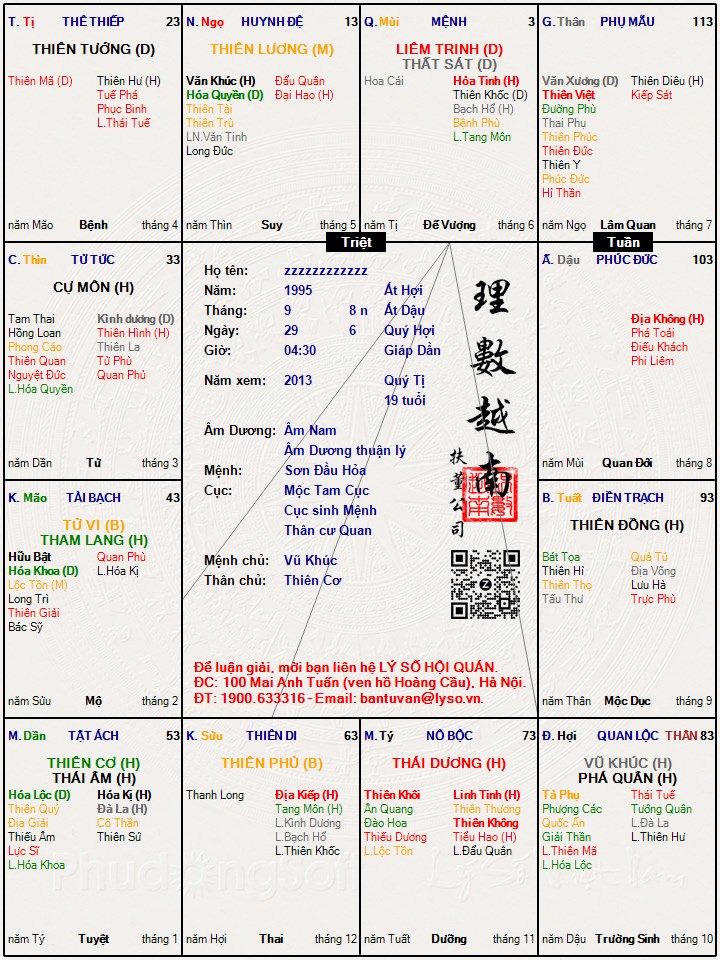 T. Tị THÊ THIẾP 23
THIÊN TƯỚNG (D)
Thiên Mã (D) Thiên Hư (H)
Tuế Phá
Phục Binh
L.Thái Tuế
năm Mão Bệnh tháng 4
N. Ngọ HUYNH ĐỆ 13
THIÊN LƯƠNG (M)
Văn Khúc (H) Đẩu Quân
Hóa Quyền (D) Đại Hao (H)
Thiên Tài
Thiên Trù
LN.Văn Tinh
Long Đức
năm Thìn Suy tháng 5
Q. Mùi MỆNH 3
LIÊM TRINH (D)
THẤT SÁT (D)
Hoa Cái Hỏa Tinh (H)
Thiên Khốc (D)
Bạch Hổ (H)
Bệnh Phù
L.Tang Môn
năm Tị Đế Vượng tháng 6
G. Thân PHỤ MẪU 113
Văn Xương (D) Thiên Diêu (H)
Thiên Việt Kiếp Sát
Đường Phù
Thai Phụ
Thiên Phúc
Thiên Đức
Thiên Y
Phúc Đức
Hỉ Thần
năm Ngọ Lâm Quan tháng 7
Triệt
Tuần
C. Thìn TỬ TỨC 33
CỰ MÔN (H)
Tam Thai Kình dương (D)
Hồng Loan Thiên Hình (H)
Phong Cáo Thiên La
Thiên Quan Tử Phù
Nguyệt Đức Quan Phủ
L.Hóa Quyền
năm Dần Tử tháng 3
Họ tên: zzzzzzzzzzzz
Năm: 1995 Ất Hợi
Tháng: 9 8 n Ất Dậu
Ngày: 29 6 Quý Hợi
Giờ: 04:30 Giáp Dần
Năm xem: 2013 Quý Tị
19 tuổi
Âm Dương: Âm Nam
Âm Dương thuận lý
Mệnh: Sơn Đầu Hỏa
Cục: Mộc Tam Cục
Cục sinh Mệnh
Thân cư Quan
Mệnh chủ: Vũ Khúc
Thân chủ: Thiên Cơ
理數越南
扶董公司
Z
Để luận giải, mời bạn liên hệ LÝ SỐ HỘI QUÁN.
ĐC: 100 Mai Anh Tuấn (ven hồ Hoàng Cầu), Hà Nội.
ĐT: 1900.633316 - Email: bantuvan@lyso.vn.
Ấ. Dậu PHÚC ĐỨC 103
Địa Không (H)
Phá Toái
Điếu Khách
Phi Liêm
năm Mùi Quan Đới tháng 8
K. Mão TÀI BẠCH 43
TỬ VI (B)
THAM LANG (H)
Hữu Bật Quan Phù
Hóa Khoa (D) L.Hóa Kị
Lộc Tồn (M)
Long Trì
Thiên Giải
Bác Sỹ
năm Sửu Mộ tháng 2
B. Tuất ĐIỀN TRẠCH 93
THIÊN ĐỒNG (H)
Bát Tọa Quả Tú
Thiên Hỉ Địa Võng
Thiên Thọ Lưu Hà
Tấu Thư Trực Phù
năm Thân Mộc Dục tháng 9
M. Dần TẬT ÁCH 53
THIÊN CƠ (H)
THÁI ÂM (H)
Hóa Lộc (D) Hóa Kị (H)
Thiên Quý Đà La (H)
Địa Giải Cô Thần
Thiếu Âm Thiên Sứ
Lực Sĩ
L.Hóa Khoa
năm Tý Tuyệt tháng 1
K. Sửu THIÊN DI 63
THIÊN PHỦ (B)
Thanh Long Địa Kiếp (H)
Tang Môn (H)
L.Kình Dương
L.Bạch Hổ
L.Thiên Khốc
năm Hợi Thai tháng 12
M. Tý NÔ BỘC 73
THÁI DƯƠNG (H)
Thiên Khôi Linh Tinh (H)
Ân Quang Thiên Thương
Đào Hoa Thiên Không
Thiếu Dương Tiểu Hao (H)
L.Lộc Tồn L.Đẩu Quân
năm Tuất Dưỡng tháng 11
Đ. Hợi QUAN LỘC THÂN 83
VŨ KHÚC (H)
PHÁ QUÂN (H)
Tả Phụ Thái Tuế
Phượng Các Tướng Quân
Quốc Ấn L.Đà La
Giải Thần L.Thiên Hư
L.Thiên Mã
L.Hóa Lộc
năm Dậu Trường Sinh tháng 10